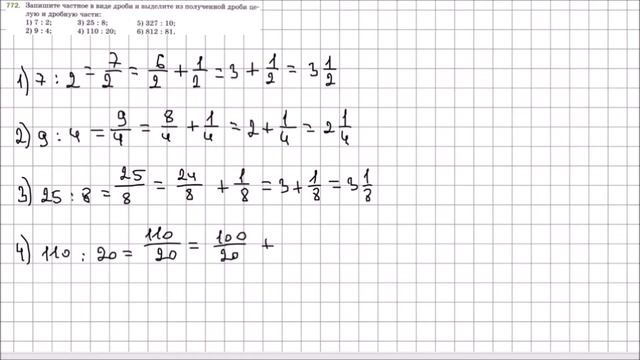 772. Запишите частное в виде дроби и выделите из полученной дроби це-
лую и дробную части:
1) 7 : 2; 3) 25 : 8; 5) 327 : 10;
2) 9 : 4; 4) 110 : 20; 6) 812 : 81.
1) 7 : 2 = 7/2 = 6/2 + 1/2 = 3 + 1/2 = 3 1/2
2) 9 : 4 = 9/4 = 8/4 + 1/4 = 2 + 1/4 = 2 1/4
3) 25 : 8 = 25/8 = 24/8 + 1/8 = 3 + 1/8 = 3 1/8
4) 110 : 20 = 110/20 = 100/20 +